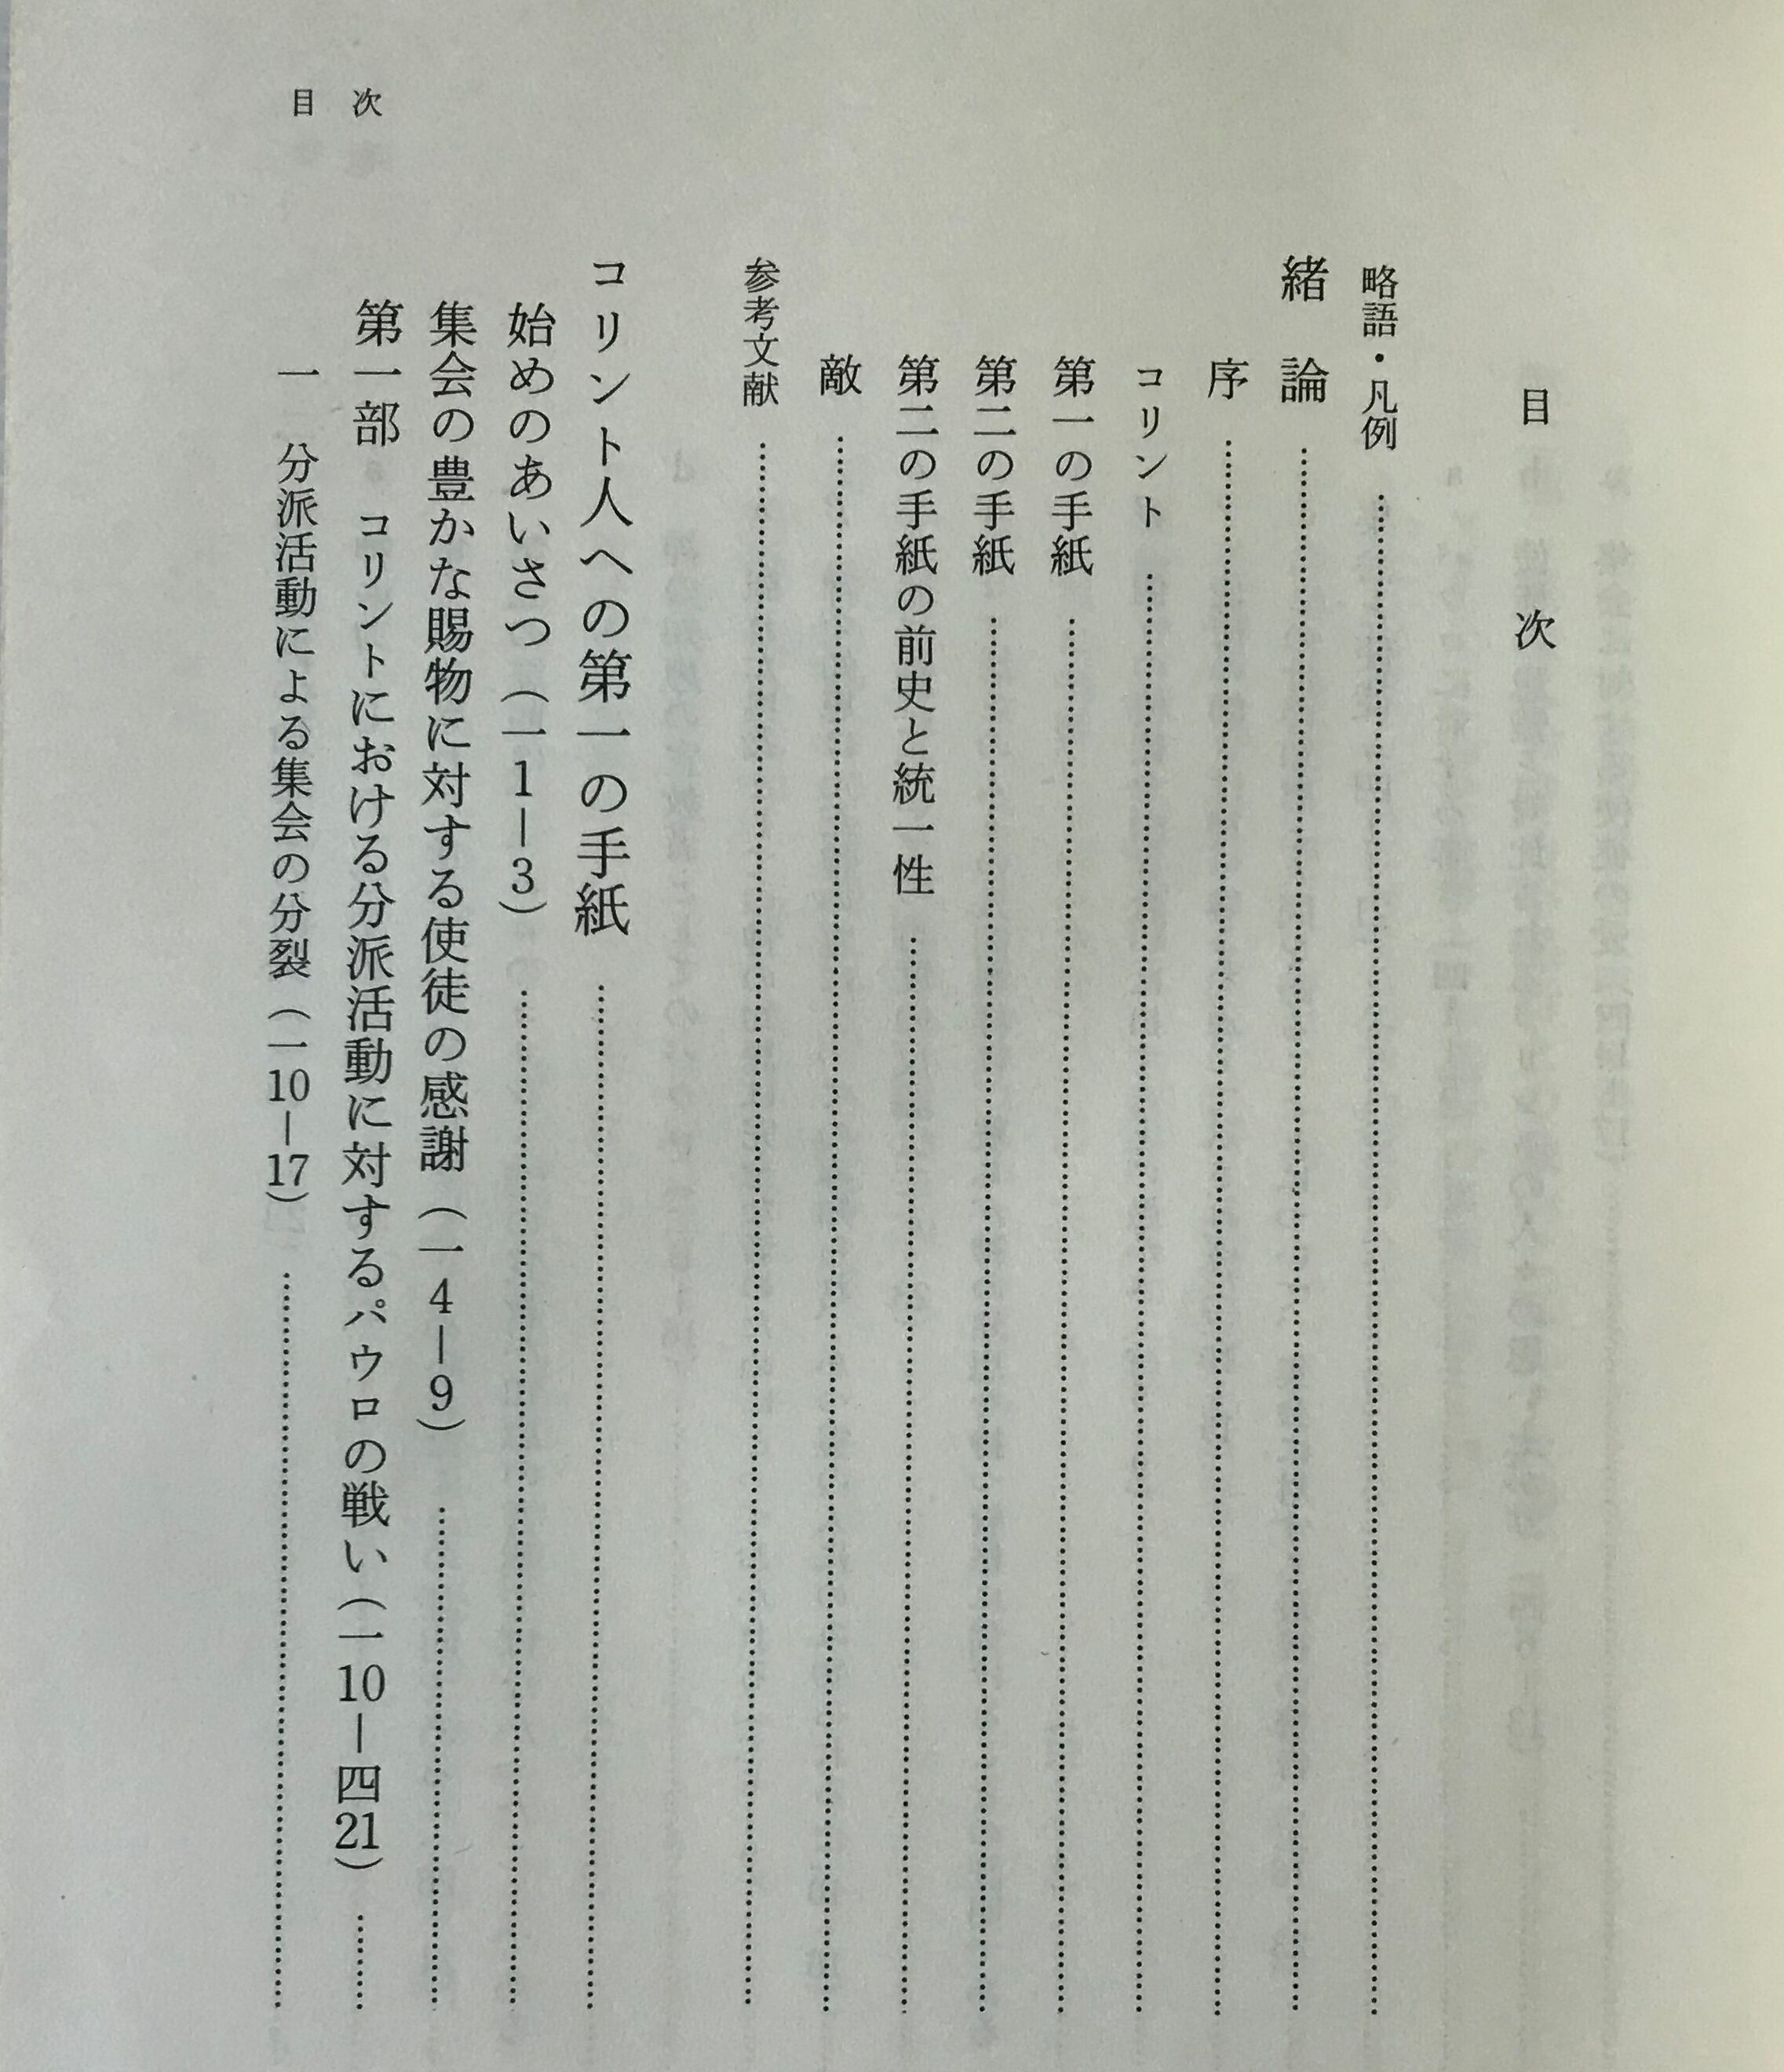 目次
目　次
略語・凡例
緒　論
序
コリント
第一の手紙
第二の手紙
第二の手紙の前史と統一性
敵
参考文献
コリント人への第一の手紙
始めのあいさつ（一1―3）
集会の豊かな賜物に対する使徒の感謝（一4―9）
第一部　コリントにおける分派活動に対するパウロの戦い（一10―四21）
一　分派活動による集会の分裂（一10―17）